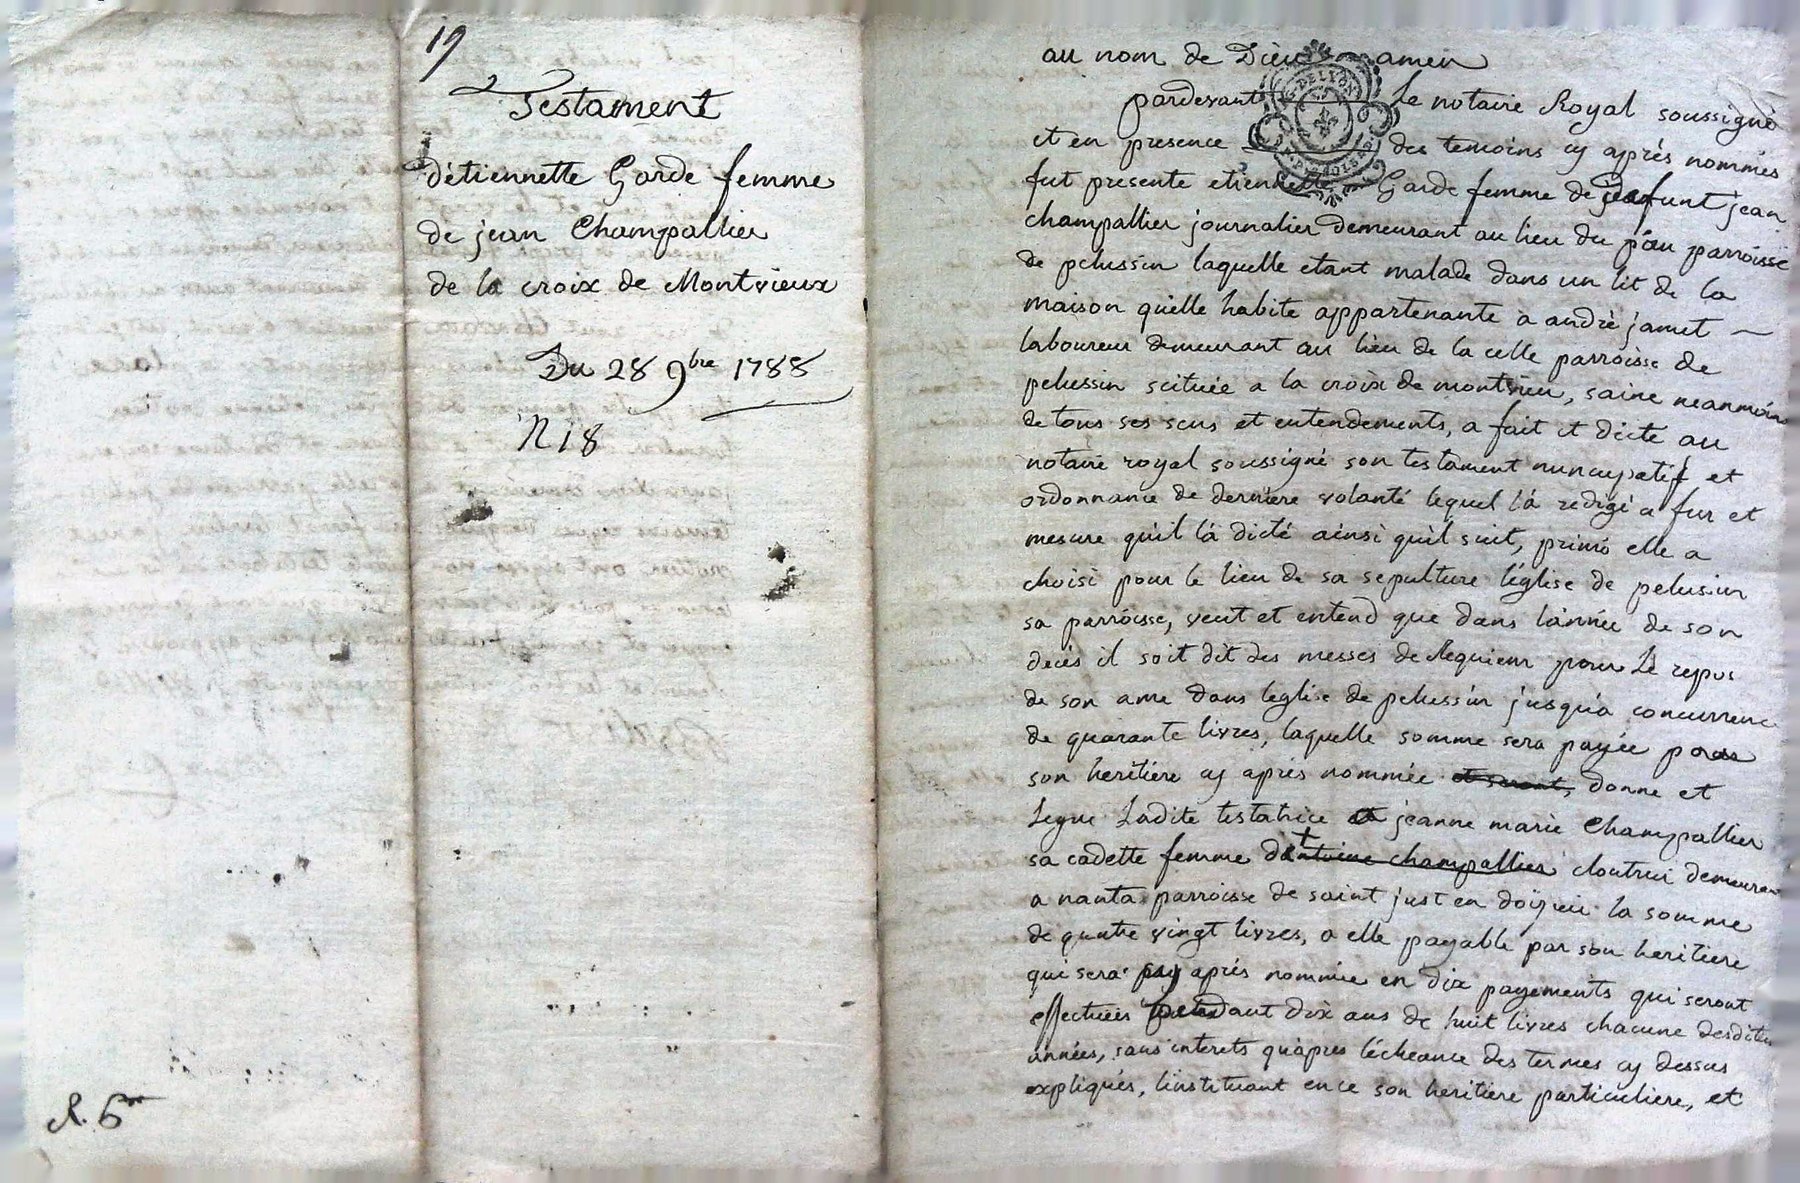 19
Testament
d'etiennette Garde femme
de jean Champallier
de la croix de Montvieux
Du 28 9bre 1788
N 18
R. 6
au nom de Dieu amen
pardevant Le notaire Royal soussigné
et en presence des temoins cy après nommés
fut presente etiennette Garde femme de defunt jean
champallier journalier demeurant au lieu du parroisse
de pelussin laquelle etant malade dans un lit de la
maison qu'elle habite appartenante a andrè jamet
laboureur demeurant au lieu de la celle parroisse de
pelussin scituée a la croix de montvieu, saine neanmoins
de tous ses sens et entendements, a fait et dicté au
notaire royal soussigné son testament nuncupatif et
ordonnance de derniere volanté lequel l'a redigé a fur et
mesure qu'il l'a dicté ainsi qu'il suit, primo elle a
choisi pour le lieu de sa sepulture l'église de pelusin
sa parroisse, veut et entend que dans l'année de son
decès il soit dit des messes de Requiem pour Le repos
de son ame dans leglise de pelussin jusqu'a concurrence
de quarante livres, laquelle somme sera payée par
son heritiere cy après nommée et seront, donne et
Legue Ladite testatrice a jeanne marie Champallier
sa cadette femme d'antoine champallier cloutrier demeurant
a nanta parroisse de saint just en doizieu la somme
de quatre vingt livres, a elle payable par son heritiere
qui sera cy après nommée en dix payements qui seront
effectués pendant dix ans de huit livres chacune desdites
années, sans interets qu'apres l'écheance des termes cy dessus
expliqués, l'instituant en ce son heritiere particuliere, et